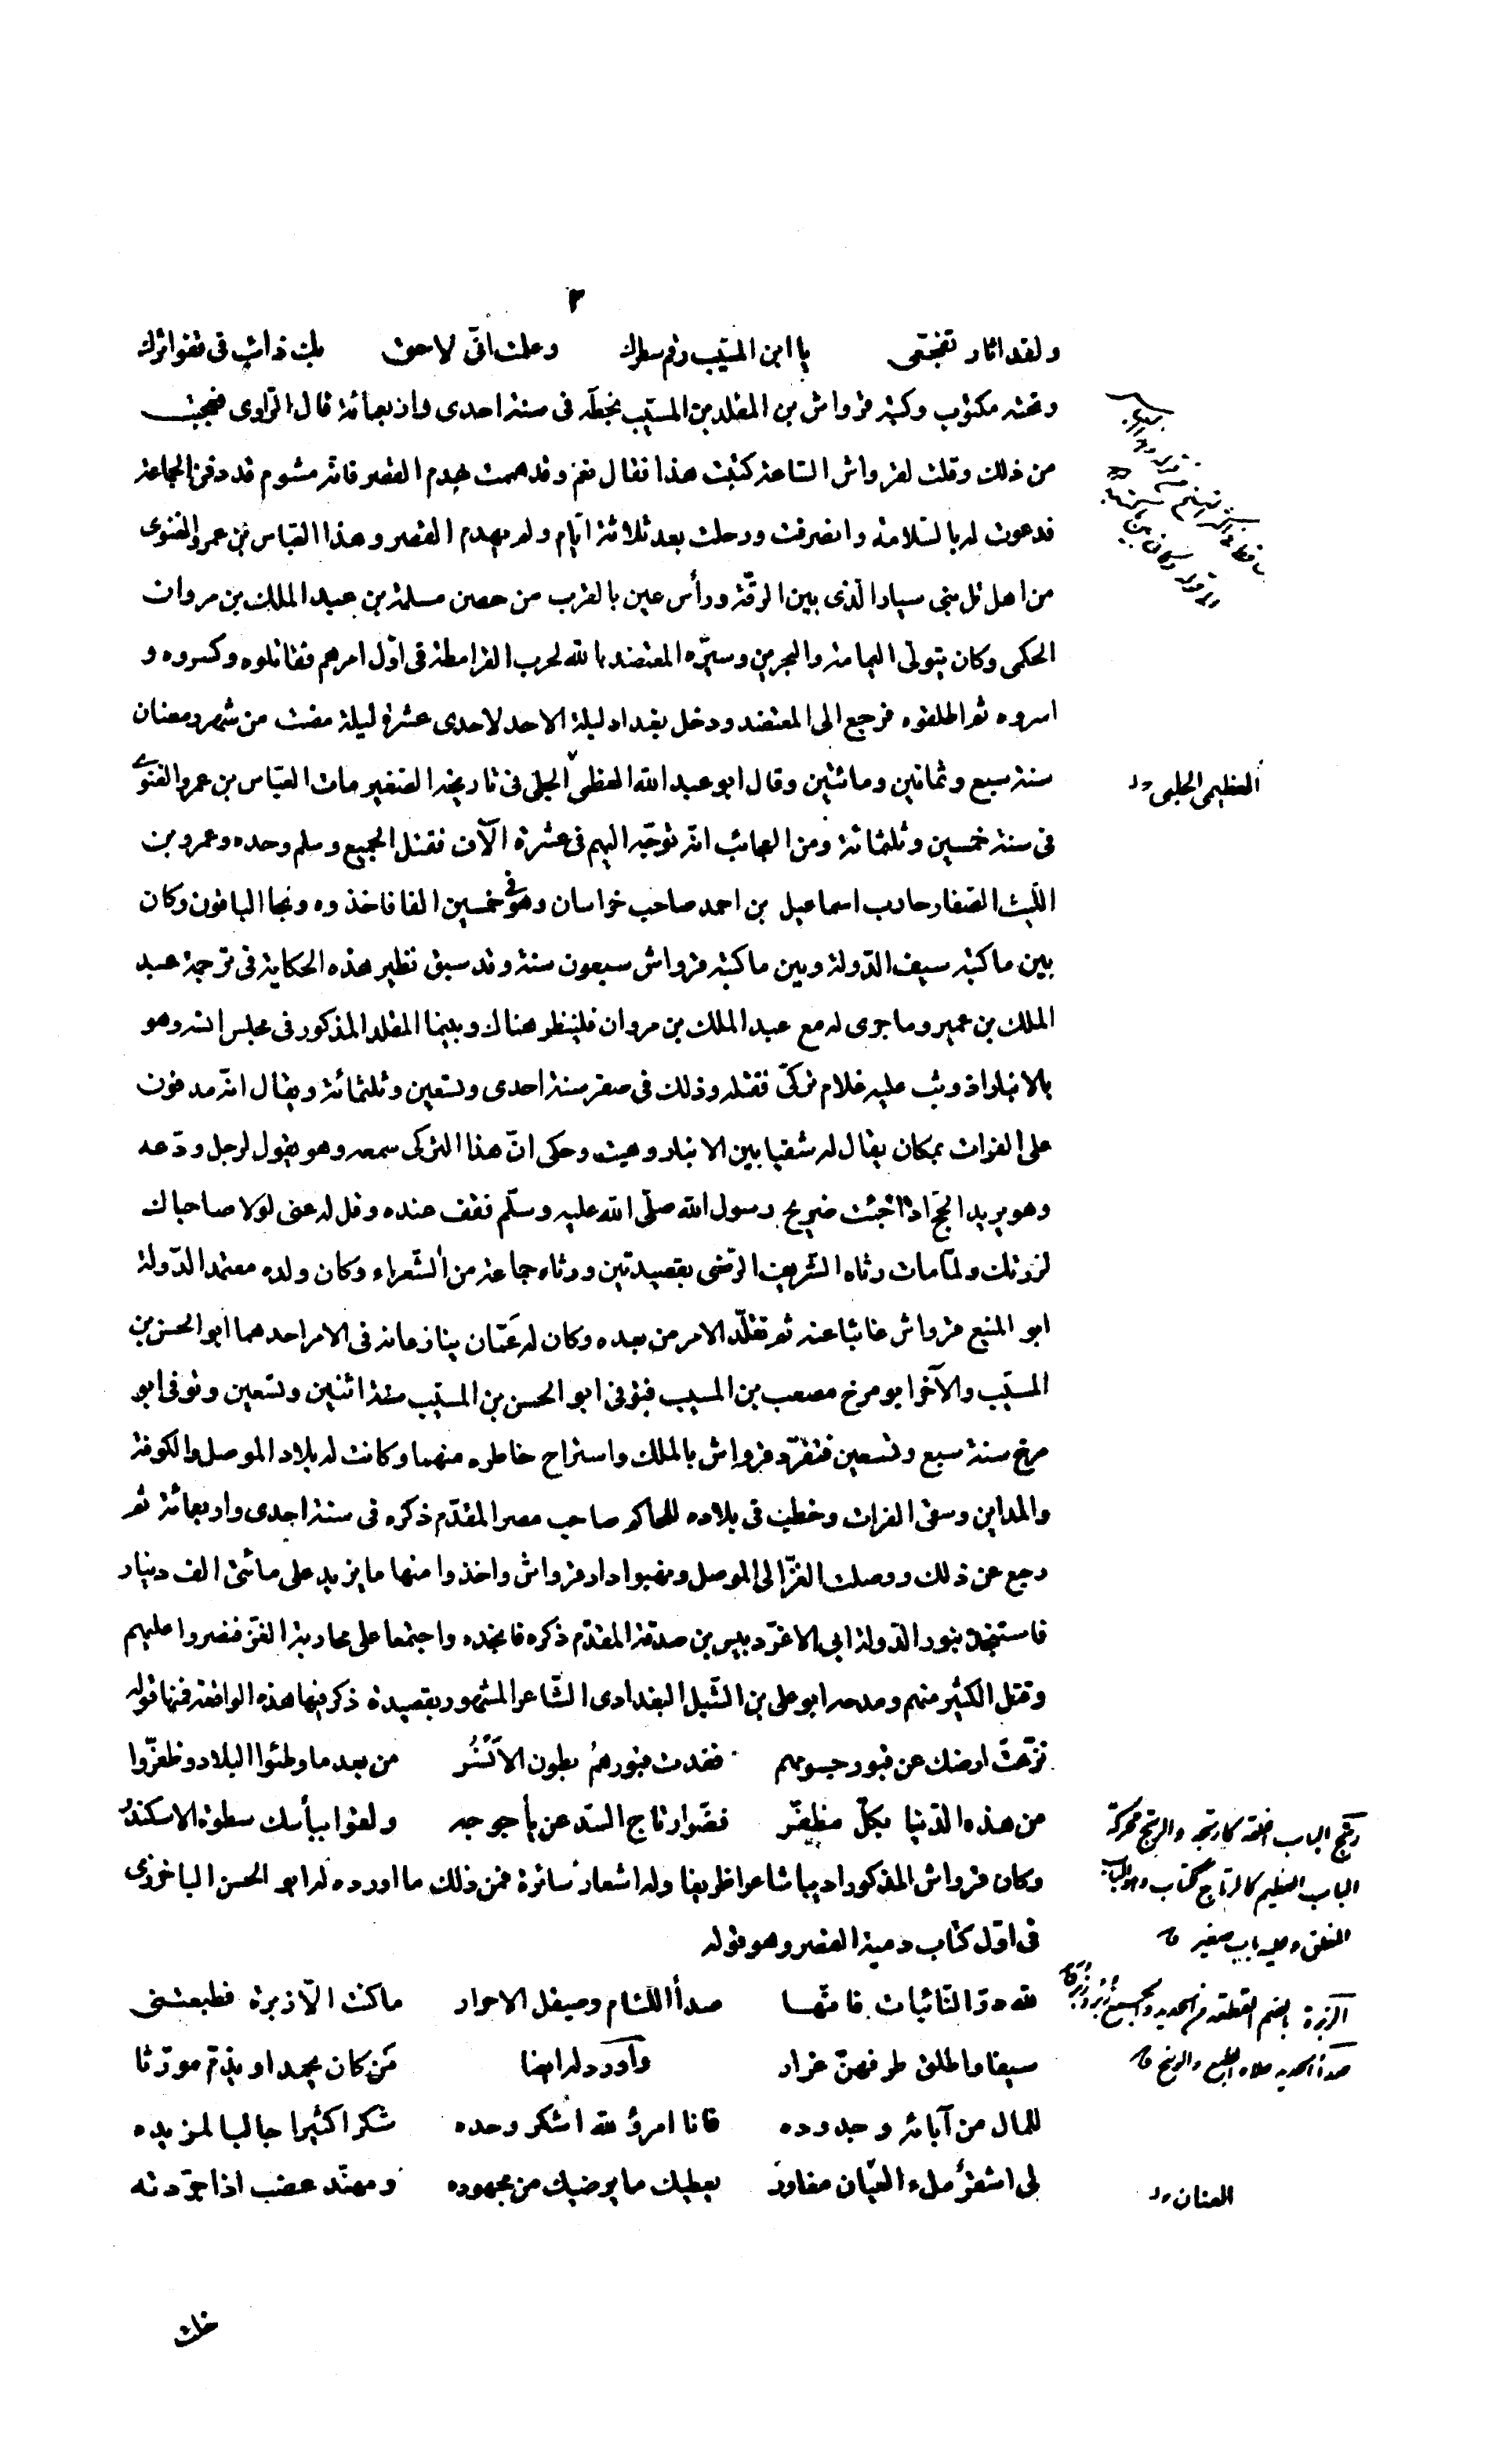 ٣
ولقد اثار تفجعى يا ابن المسيب رقم سطرك وعلمت انى لاحق بك ذائب فى قفو اثرك
وتحته مكتوب وكتبه قرواش بن المقلد بن المسيب بخطه فى سنة احدى واربعمائة قال الراوى فعجبت
من ذلك وقلت لقرواش الساعة كتبت هذا فقال نعم وقد هممت بهدم القصر فانه مشوم قد دفن الجماعة
فدعوت له بالسلامة وانصرفت ورحلت بعد ثلاثة ايام ولم يهدم القصر وهذا العباس بن عمرو الغنوى
من اهل تل بنى سيار الذى بين الرقة ورأس عين بالقرب من حصن مسلمة بن عبد الملك بن مروان
الحكمى وكان يتولى اليمامة والبحرين وسيره المعتضد بالله لحرب القرامطة فى اول امرهم فقاتلوه وكسروه و
اسروه ثم اطلقوه فرجع الى المعتضد ودخل بغداد ليلة الاحد لاحدى عشرة ليلة مضت من شهر رمضان
سنة سبع وثمانين ومائتين وقال ابو عبد الله العظمى الحلبى فى تاريخه الصغير مات العباس بن عمرو الغنوى
العظيمى الحلبى
فى سنة خمسين وثلثمائة ومن العجائب انه توجه اليهم فى عشرة آلاف فقتل الجميع وسلم وحده وعمرو بن
الليث الصفار حارب اسماعيل بن احمد صاحب خراسان وهو فى خمسين الفا فاخذوه ونجا الباقون وكان
بين ما كتبه سيف الدولة وبين ما كتبه قرواش سبعون سنة وقد سبق نظير هذه الحكاية فى ترجمة عبد
الملك بن عمير وما جرى له مع عبد الملك بن مروان فلينظر هناك وبينما المقلد المذكور فى مجلس انسه وهو
بالانبار اذ وثب عليه غلام تركى فقتله وذلك فى صفر سنة احدى وتسعين وثلثمائة ويقال انه مدفون
على الفرات بمكان يقال له شقيا بين الانبار وهيت وحكى ان هذا التركى سمعه وهو يقول لرجل ودعه
وهو يريد الحج اذا جئت ضريح رسول الله صلى الله عليه وسلم فقف عنده وقل له عنى لولا صاحباك
لزرتك ولما مات رثاه الشريف الرضى بقصيدتين ورثاه جماعة من الشعراء وكان ولده معتمد الدولة
ابو المنيع قرواش غائبا عنه ثم تقلد الامر من بعده وكان له عمان ينازعانه فى الامر احدهما ابو الحسن بن
المسيب والآخر ابو مرخ مصعب بن المسيب فتوفى ابو الحسن بن المسيب سنة اثنين وتسعين وتوفى ابو
مرخ سنة سبع وتسعين فتفرد قرواش بالملك واستراح خاطره منهما وكانت له بلاد الموصل والكوفة
والمداين وسقى الفرات وخطب فى بلاده للحاكم صاحب مصر المقدم ذكره فى سنة احدى واربعمائة ثم
رجع عن ذلك ووصلت الغز الى الموصل ونهبوا دار قرواش واخذوا منها ما يزيد على مائتى الف دينار
فاستنجد بنور الدولة ابى الاغر دبيس بن صدقة المقدم ذكره فانجده واجتمعا على محاربة الغز فنصروا عليهم
وقتل الكثير منهم ومدحه ابو على بن الشبل البغدادى الشاعر المشهور بقصيدة ذكر فيها هذه الواقعة فمنها قوله
نزهت ارضك عن قبور جسومهم فغدت قبورهم بطون الانسر من بعد ما وطئوا البلاد وظفروا
من هذه الدنيا بكل مظفر فضوا رتاج السد عن يأجوجه ولقوا ببأسك سطوة الاسكندر
رتج الباب اغلقه كارتجه والرتج محركة
الباب العظيم كالرتاج ككتاب وهو الباب
المغلق وعليه باب صغير
وكان قرواش المذكور اديبا شاعرا ظريفا وله اشعار سائرة فمن ذلك ما اورده له ابو الحسن الباخرزى
فى اول كتاب دمية القصر وهو قوله
لله در النائبات فانها صدأ اللئام وصيقل الاحرار ما كنت الا زبرة فطبعننى
الزبرة بالضم القطعة من الحديد
سيفا واطلق طرفهن غرار واورد له ايضا من كان يحمد او يذم مورثا
صدأ الحديد علاه الطبع والوسخ
للمال من آبائه وجدوده فانا امرؤ لله اشكر وحده شكرا كثيرا جالبا لمزيده
لى اشقر ملء العيان مغاور يعطيك ما يرضيك من مجهوده ومهند عضب اذا جردته
العنان
خلت